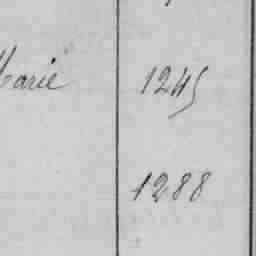 Marie 1245
1288